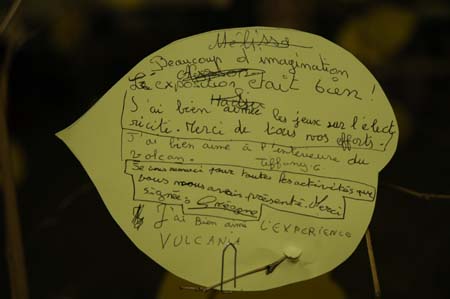 Mélissa
Beaucoup d'imagination
L'exposition était bien !
J'ai bien aimée les jeux sur l'élect
ricité. Merci de tous vos efforts.
J'ai bien aimé à l'interieure du
volcan. Tiffany.G.
Je vous remerci pour toutes les activités que
vous nous avais présenté. Merci
signée:
J'ai Bien aimé L'EXPERIENCE
VULCANIA